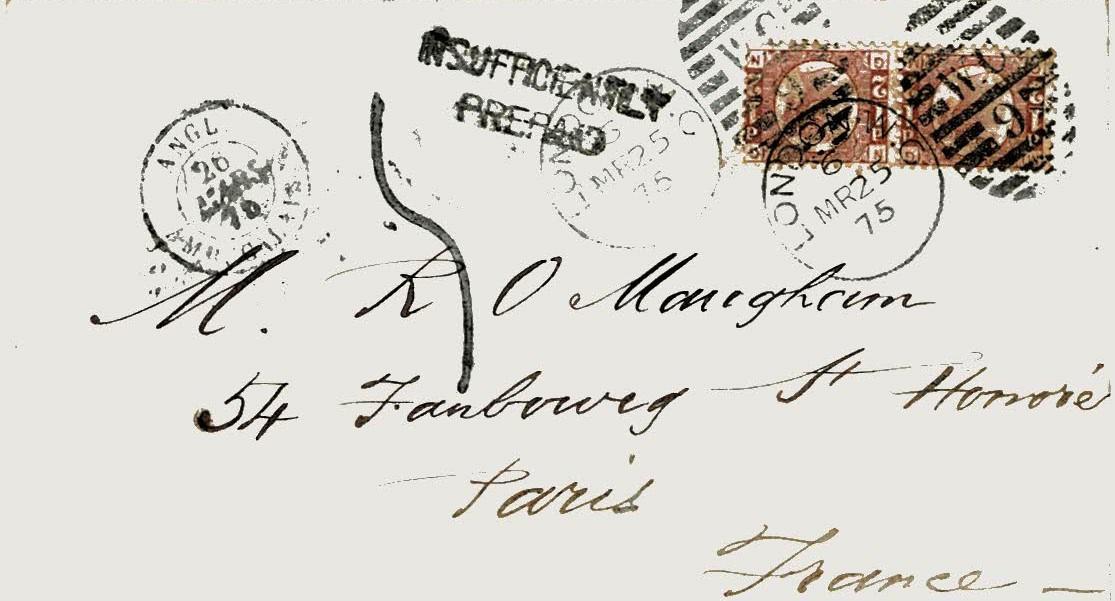 INSUFFICIENTLY
PREPAID
ANGL.
26
MARS
75
AMB. CALAIS
LONDON W.C
MR25
75
W.C
9
LONDON W.C
6
MR25
75
M. R O Maugham
54 Faubourg St Honoré
Paris
France